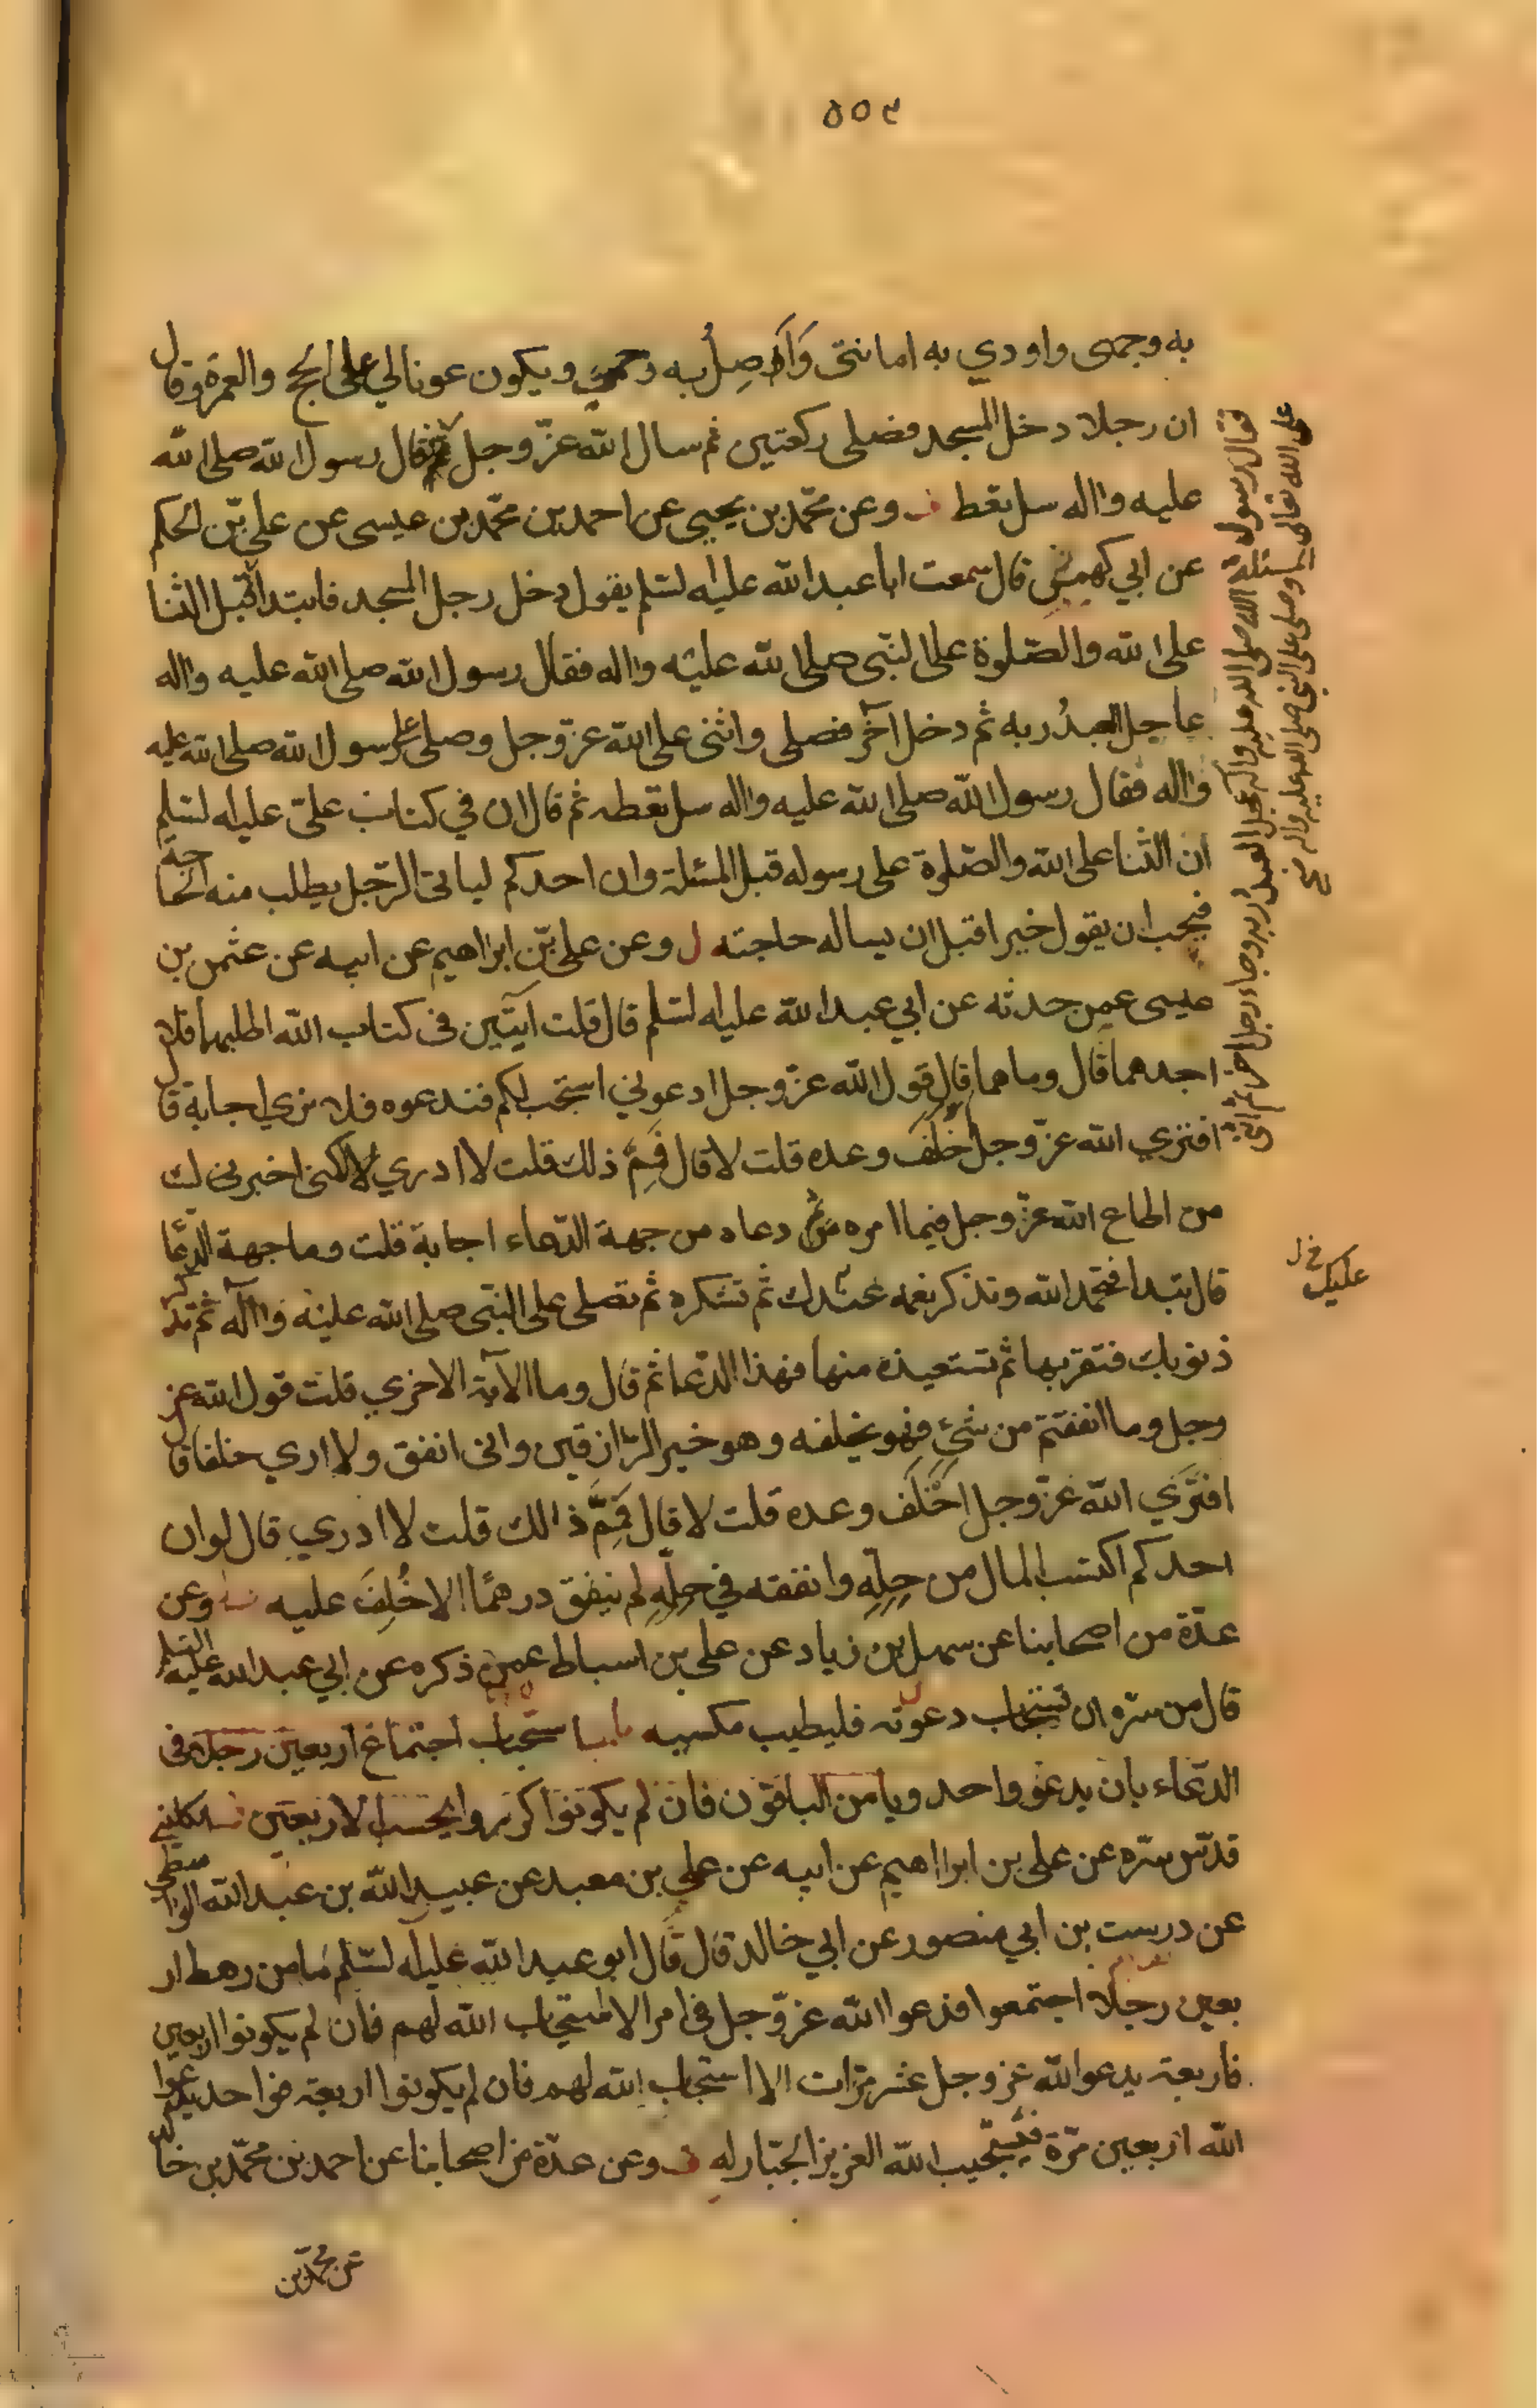 ٥٥٢
به وجهى واودي به امانتى وَاَصِلُ به رحمي ويكون عونا لي على الحج والعمرة وقال
ان رجلا دخل المسجد فصلى ركعتين ثم سال الله عزّ وجل فقال رسول الله صلى الله
عليه واله سل تعط وعن محمّد بن يحيى عن احمد بن محمّد بن عيسى عن علي بّن الحكم
عن ابي كهمش قال سمعت ابا عبد الله عليه لسّلم يقول دخل رجل المسجد فابتدا قبل الثنا
على الله والصّلوة على النّبى صلى الله عليه واله فقال رسول الله صلى الله عليه واله
عاجل العبدُ ربه ثم دخل آخر فصلى واثنى على الله عزّ وجل وصلى على رسول الله صلى الله عليه
واله فقال رسول الله صلى الله عليه واله سل تعطه ثم قال ان في كتاب علىّ عليه لسّلم
ان الثنا على الله والصّلوة على رسوله قبل المسئلة وان احدكم لياتى الرّجل يطلب منه الحاجة
فيحب ان يقول خيرا قبل ان يساله حاجته ل وعن على بّن ابراهيم عن ابيه عن عثمن بن
عيسى عمن حدثه عن ابي عبد الله عليه لسّلم قال قلت آيتين فى كتاب الله اطلبهما فلا
اجدهما قال وما هما قال قول الله عزّ وجل ادعوني استجب لكم فندعوه فلا نري اجابة قال
افتري الله عزّ وجل اَخْلَفَ وعده قلت لا قال فَمِمَّ ذلك قلت لا ادري قال لكنى اخبرك
من اطاع الله عزّ وجل فيما امره ثم دعاه من جهة الدّعاء اجابة قلت وما جهة الدّعا
قال تبدا فتحمد الله وتذكر نعمه عندك ثم تشكره ثم تصلى على النبّى صلى الله عليه واله ثم تذكر
ذنوبك فتقر بها ثم تستعيذه منها فهذا الدّعا ثم قال وما الآية الاخري قلت قول الله عز
وجل وما انفقتم من شئٍ فهو يخلفه وهو خير الرّازقين وانى انفق ولا اري خلفا قال
افتَرَي الله عزّ وجل اَخْلَفَ وعده قلت لا قال فَمِمَّ ذالك قلت لا ادري قال لو ان
احدكم اكتسب المال من حِلِّهِ وانفقه في حِلِّهِ لم ينفق درهمًا الا اخُلِفَ عليه وعن
عدّة من اصحابنا عن سهل بن زياد عن على بن اسباط عمن ذكره عن ابي عبد الله عليه السّلم
قال من سّره ان تستجاب دعوته فليطيب مكسبه باب استحباب اجتماع اربعين رجلا فى
الدّعاء بان يدعو واحد ويامن الباقون فان لم يكونوا كرروا بحسب الاربعين الكلينى
قدّس سّره عن على بن ابراهيم عن ابيه عن علي بن معبد عن عبيد الله بن عبد الله الواسطي
عن درست بن ابي منصور عن ابي خالد قال قال ابو عبد الله عليه لسّلم ما من رهط ار
بعين رجلا اجتمعوا فدعوا الله عزّ وجل فى امر الا استجاب الله لهم فان لم يكونوا اربعين
فاربعة يدعوا الله عز وجل عشر مّرات الا استجاب الله لهم فان لم يكونوا اربعة فواحد يدعوا
الله اربعين مّرة فيستجيب الله العزيز الجبّار له وعن عدّة من اصحابنا عن احمد بن محمّد بن خا
عن محمّد بن
فقال رسول الله صلى الله عليه واله عجل العبد ربه وجاء رجل اخر ثم اثنى
على الله تعالى وصلى على النبي صلى الله عليه واله
عليك